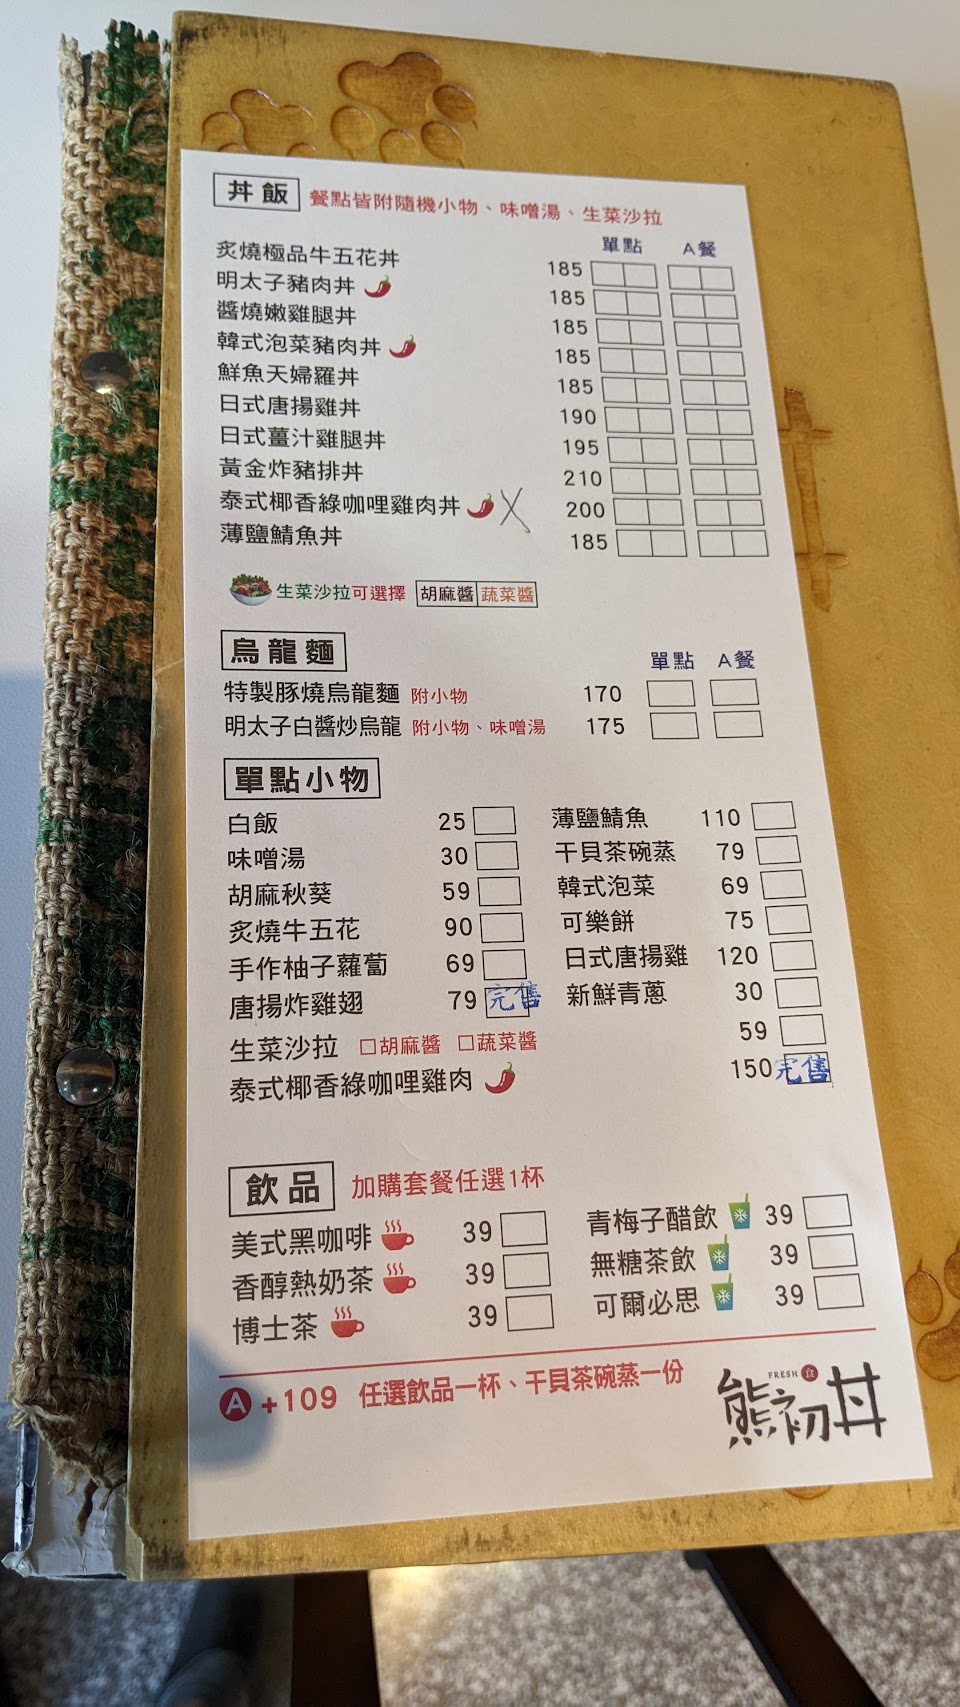 丼飯 餐點皆附隨機小物、味噌湯、生菜沙拉
單點 A餐
炙燒極品牛五花丼 185
明太子豬肉丼 185
醬燒嫩雞腿丼 185
韓式泡菜豬肉丼 185
鮮魚天婦羅丼 185
日式唐揚雞丼 190
日式薑汁雞腿丼 195
黃金炸豬排丼 210
泰式椰香綠咖哩雞肉丼 X 200
薄鹽鯖魚丼 185
生菜沙拉可選擇 胡麻醬 蔬菜醬
烏龍麵 單點 A餐
特製豚燒烏龍麵 附小物 170
明太子白醬炒烏龍 附小物、味噌湯 175
單點小物
白飯 25 薄鹽鯖魚 110
味噌湯 30 干貝茶碗蒸 79
胡麻秋葵 59 韓式泡菜 69
炙燒牛五花 90 可樂餅 75
手作柚子蘿蔔 69 日式唐揚雞 120
唐揚炸雞翅 79 完售 新鮮青蔥 30
生菜沙拉 □胡麻醬 □蔬菜醬 59
泰式椰香綠咖哩雞肉 150 完售
飲品 加購套餐任選1杯
美式黑咖啡 39 青梅子醋飲 39
香醇熱奶茶 39 無糖茶飲 39
博士茶 39 可爾必思 39
A +109 任選飲品一杯、干貝茶碗蒸一份
FRESH 食
熊初丼